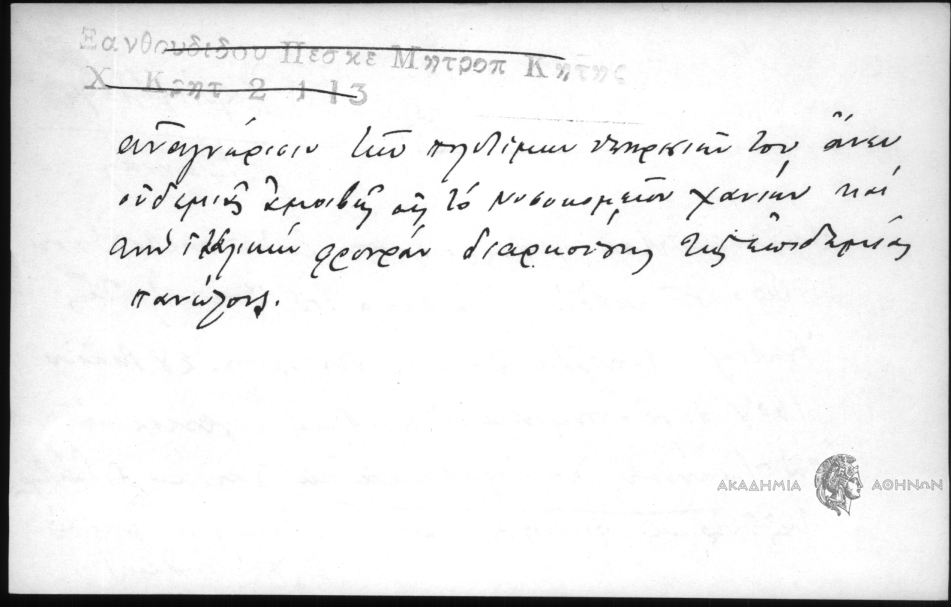 Ξανθουδιδου Πεσκε Μητροπ Κητης
Χ Κρητ 2 1 13
αναγνώρισιν τῶν πολυτίμων ὑπηρεσιῶν του ἄνευ
οὐδεμιᾶς ἀμοιβῆς εἰς τὸ νοσοκομεῖον Χανίων καὶ
ἰταλικὴν φρουρὰν διαρκούσης τῆς ἐπιδημίας
πανώλους.
ΑΚΑΔΗΜΙΑ ΑΘΗΝΩΝ